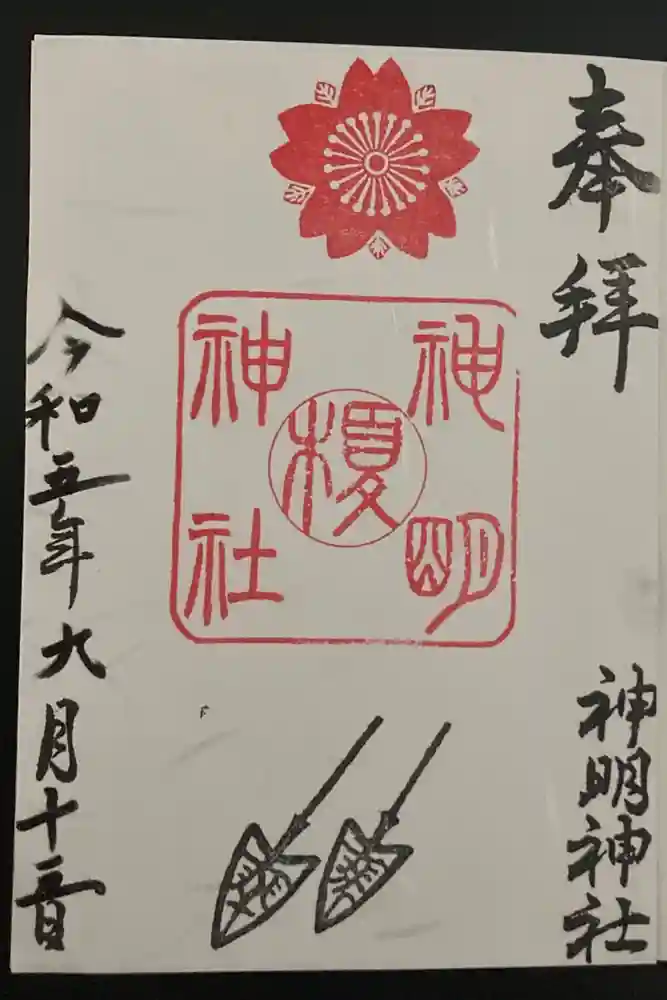 奉拝
神明神社
神明
榎
神社
令和五年九月十日